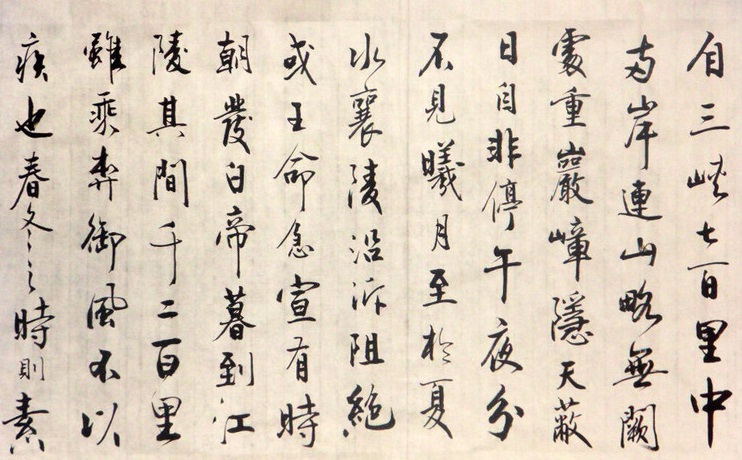 自三峽七百里中
兩岸連山略無闕
處重巖嶂隱天蔽
日自非停午夜分
不見曦月至於夏
水襄陵沿泝阻絕
或王命急宣有時
朝發白帝暮到江
陵其間千二百里
雖乘奔御風不以
疾也春冬之時則素